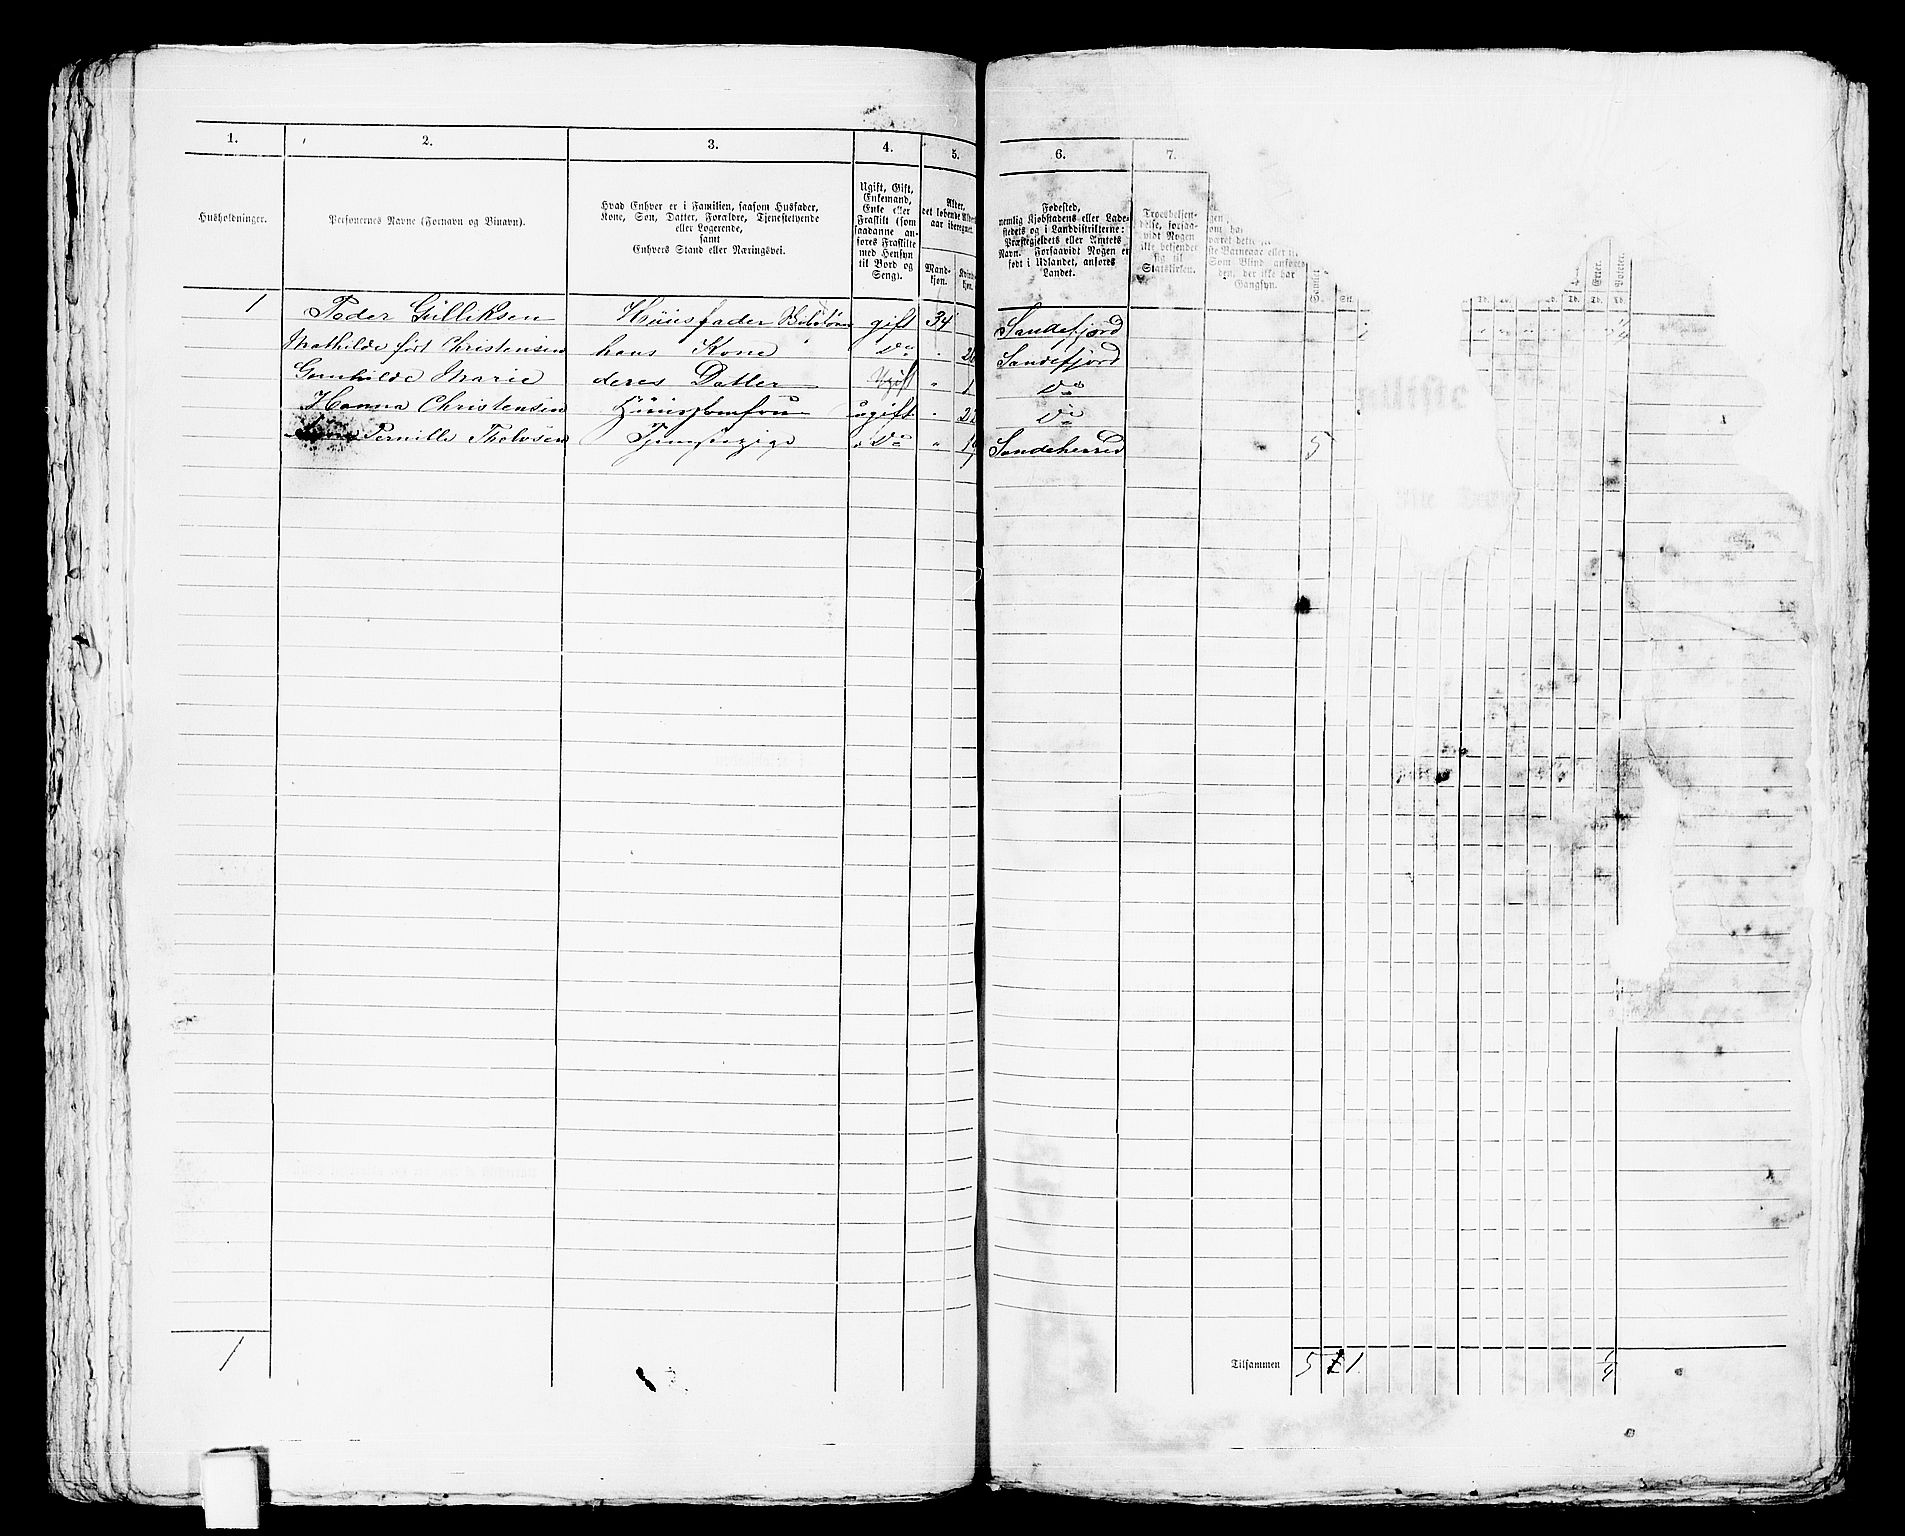 1. 2. 3. 4. 5. 6. 7.
Husholdninger.
Personernes Navne (Fornavn og Binavn).
Hvad Enhver er i Familien, saasom Husfader,
Kone, Søn, Datter, Forældre, Tjenestetyende
eller Logerende,
samt
Enhvers Stand eller Næringsvei.
Ugift, Gift,
Enkemand,
Enke eller
Fraskilt (som
saadanne an-
føres Fraskilte
med Hensyn
til Bord og
Seng).
Alder,
det løbende Alders-
aar iberegnet.
Mand-
kjøn.
Kvinde-
kjøn.
Fødested,
nemlig Kjøbstadens eller Lade-
stedets og i Landdistrikterne:
Præstegjeldets eller Amtets
Navn. Forsaavidt Nogen er
født i Udlandet, anføres
Landet.
Troesbekjen-
delse, forsaa-
vidt Nogen
ikke bekjender
sig til
Statskirken.
Som Blind anføres
den, der ikke har
Gangsyn.
Erter.
Poteter.
Td. Td. Td. Td. Td.
1 Peder Gulliksen Huusfader gift 34 Sandefjord 1/4
Mathilde født Christensen hans Kone Do Sandefjord
Gunhilde Marie deres Datter Ugift " 1 Do
Hanna Christensen ugift " 22 Do
Pernille Do " 19 Sandeherred 5
1
Tilsammen 5 1 1/4